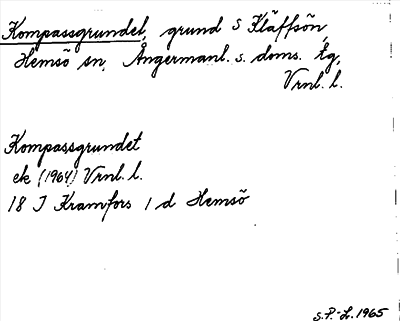 Kompassgrundet, grund S Kläffsön,
Hemsö sn, Ångermanl. s. doms. tg,
Vrnl. l.
Kompassgrundet
ek (1964) Vrnl. l.
18 J Kramfors 1 d Hemsö
S.P.-L. 1965